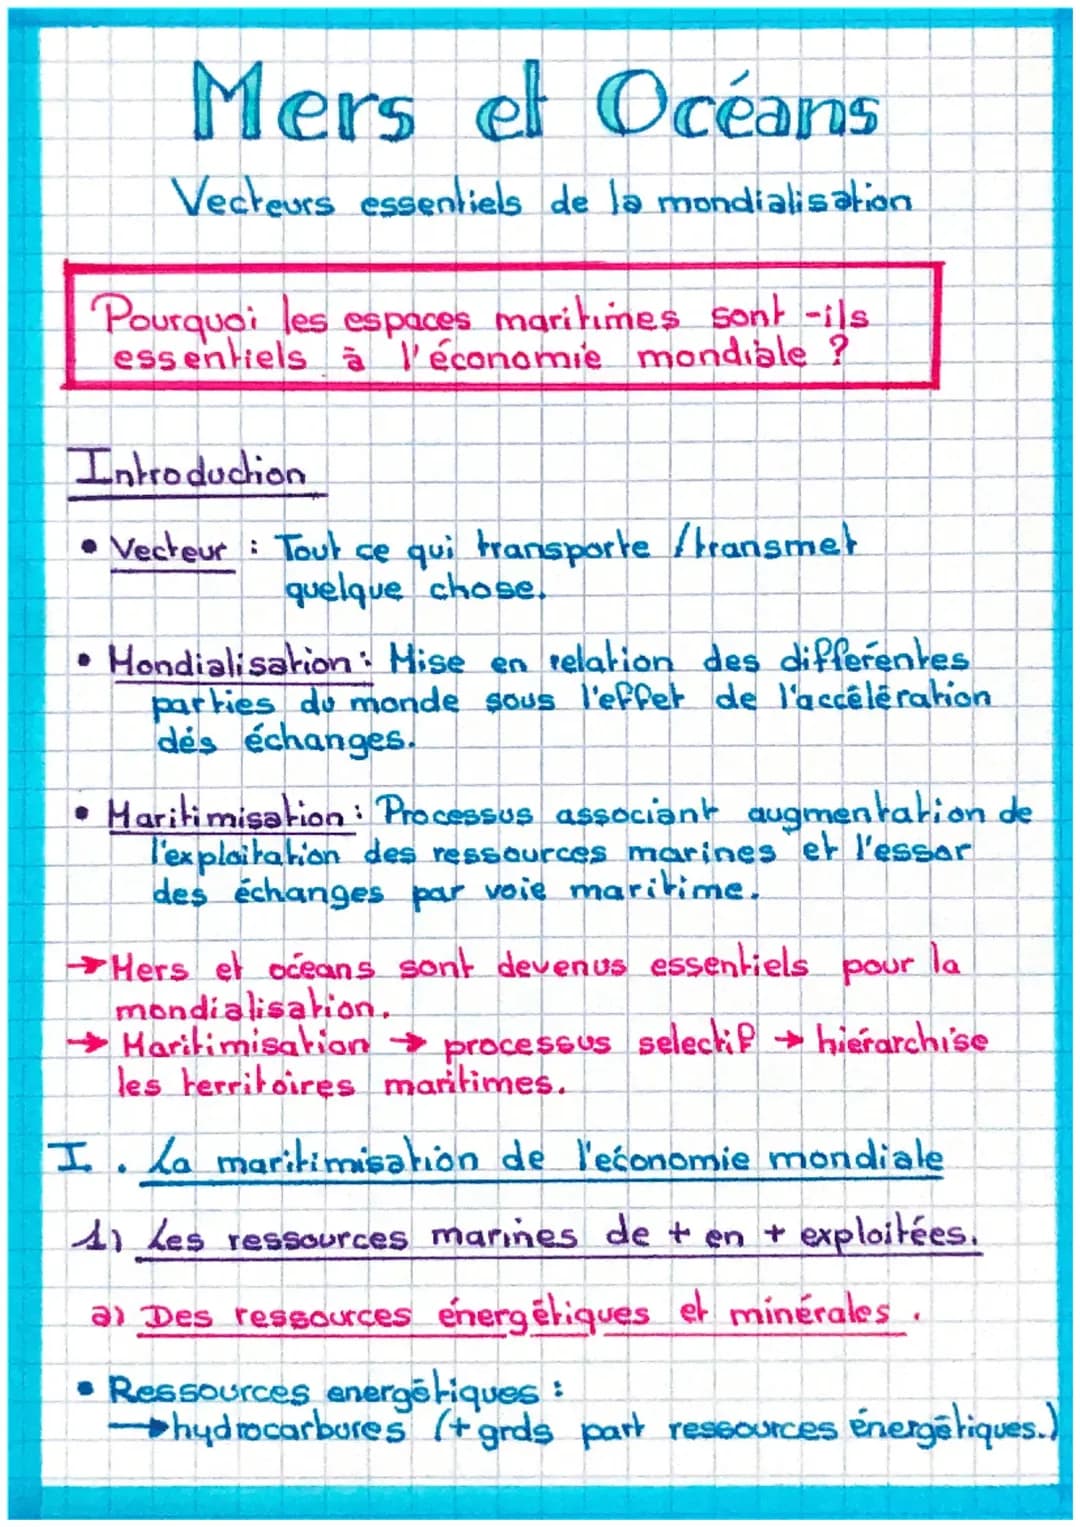 Mers et Océans
Vecteurs essentiels de la mondialisation
Pourquoi les espaces maritimes sont-ils
essentiels à l'économie mondiale ?
Introduction
• Vecteur : Tout ce qui transporte / transmet
quelque chose.
• Mondialisation : Mise en relation des différentes
parties du monde sous l'effet de l'accélération
dés échanges.
• Maritimisation : Processus associant augmentation de
l'exploitation des ressources marines et l'essor
des échanges par voie maritime.
→ Mers et océans sont devenus essentiels pour la
mondialisation.
→ Maritimisation → processus selectif → hiérarchise
les territoires maritimes.
I. La maritimisation de l'économie mondiale
1) Les ressources marines de + en + exploitées.
a) Des ressources énergétiques et minérales.
• Ressources energétiques :
→ hydrocarbures (+ grds part ressources énergétiques.)